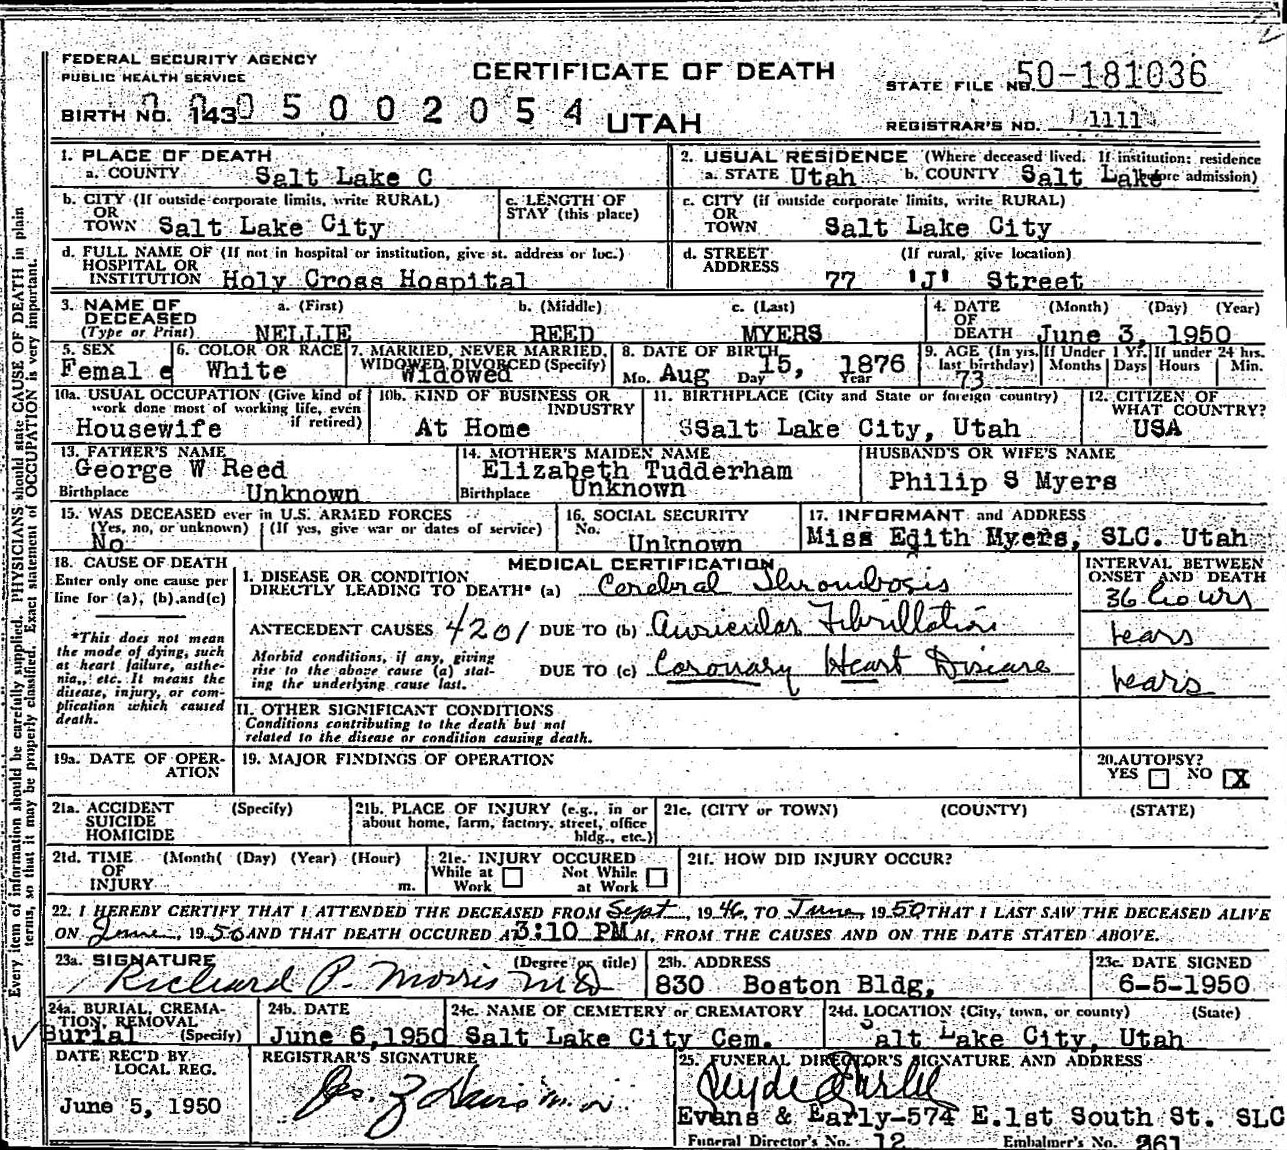 FEDERAL SECURITY AGENCY
PUBLIC HEALTH SERVICE
CERTIFICATE OF DEATH
STATE FILE NO. 50-181036
BIRTH NO. 143 0 5 0 0 2 0 5 4
UTAH
REGISTRAR'S NO. 1111
1. PLACE OF DEATH
a. COUNTY Salt Lake C
2. USUAL RESIDENCE (Where deceased lived. If institution: residence before admission)
a. STATE Utah b. COUNTY Salt Lake
b. CITY (If outside corporate limits, write RURAL)
OR
TOWN Salt Lake City
c. LENGTH OF
STAY (this place)
c. CITY (if outside corporate limits, write RURAL)
OR
TOWN Salt Lake City
d. FULL NAME OF (If not in hospital or institution, give st. address or loc.)
HOSPITAL OR
INSTITUTION Holy Cross Hospital
d. STREET (If rural, give location)
ADDRESS 77 'J' Street
3. NAME OF a. (First) b. (Middle) c. (Last)
DECEASED
(Type or Print) NELLIE REED MYERS
4. DATE (Month) (Day) (Year)
OF
DEATH June 3, 1950
5. SEX
Femal e
6. COLOR OR RACE
White
7. MARRIED, NEVER MARRIED,
WIDOWED DIVORCED (Specify)
Widowed
8. DATE OF BIRTH
Mo. Aug Day 15, 1876 Year
9. AGE (In yrs. last birthday)
73
If Under 1 Yr.
Months Days
If under 24 hrs.
Hours Min.
10a. USUAL OCCUPATION (Give kind of
work done most of working life, even
if retired)
Housewife
10b. KIND OF BUSINESS OR
INDUSTRY
At Home
11. BIRTHPLACE (City and State or foreign country)
SSalt Lake City, Utah
12. CITIZEN OF
WHAT COUNTRY?
USA
13. FATHER'S NAME
George W Reed
Birthplace Unknown
14. MOTHER'S MAIDEN NAME
Elizabeth Tudderham
Birthplace Unknown
HUSBAND'S OR WIFE'S NAME
Philip S Myers
15. WAS DECEASED ever in U.S. ARMED FORCES
(Yes, no, or unknown) (If yes, give war or dates of service)
No
16. SOCIAL SECURITY
No.
Unknown
17. INFORMANT and ADDRESS
Miss Edith Myers, SLC. Utah
18. CAUSE OF DEATH
Enter only one cause per
line for (a), (b), and (c)
*This does not mean
the mode of dying, such
as heart failure, asthe-
nia, etc. It means the
disease, injury, or com-
plication which caused
death.
MEDICAL CERTIFICATION
INTERVAL BETWEEN
ONSET AND DEATH
I. DISEASE OR CONDITION
DIRECTLY LEADING TO DEATH* (a) Cerebral Thrombosis 36 hours
ANTECEDENT CAUSES 4201 DUE TO (b) Auricular Fibrillation years
Morbid conditions, if any, giving
rise to the above cause (a) stat-
ing the underlying cause last.
DUE TO (c) Coronary Heart Disease years
II. OTHER SIGNIFICANT CONDITIONS
Conditions contributing to the death but not
related to the disease or condition causing death.
19a. DATE OF OPER-
ATION
19. MAJOR FINDINGS OF OPERATION
20. AUTOPSY?
YES NO X
21a. ACCIDENT (Specify)
SUICIDE
HOMICIDE
21b. PLACE OF INJURY (e.g., in or
about home, farm, factory, street, office
bldg., etc.)
21c. (CITY or TOWN) (COUNTY) (STATE)
21d. TIME (Month( (Day) (Year) (Hour)
OF
INJURY m.
21e. INJURY OCCURED
While at Work Not While at Work
21f. HOW DID INJURY OCCUR?
22. I HEREBY CERTIFY THAT I ATTENDED THE DECEASED FROM Sept, 1946, TO June, 1950 THAT I LAST SAW THE DECEASED ALIVE
ON June, 1950 AND THAT DEATH OCCURED AT 3:10 PM M. FROM THE CAUSES AND ON THE DATE STATED ABOVE.
23a. SIGNATURE (Degree or title)
Richard P. Morris MD
23b. ADDRESS
830 Boston Bldg,
23c. DATE SIGNED
6-5-1950
24a. BURIAL, CREMA-
TION, REMOVAL
(Specify)
Burial
24b. DATE
June 6, 1950
24c. NAME OF CEMETERY or CREMATORY
Salt Lake City Cem.
24d. LOCATION (City, town, or county) (State)
Salt Lake City, Utah
DATE REC'D BY
LOCAL REG.
June 5, 1950
REGISTRAR'S SIGNATURE
25. FUNERAL DIRECTOR'S SIGNATURE AND ADDRESS
Evans & Early-574 E.1st South St. SLC
Funeral Director's No. 12 Embalmer's No. 261
Every item of information should be carefully supplied. PHYSICIANS should state CAUSE OF DEATH in plain
terms, so that it may be properly classified. Exact statement of OCCUPATION is very important.